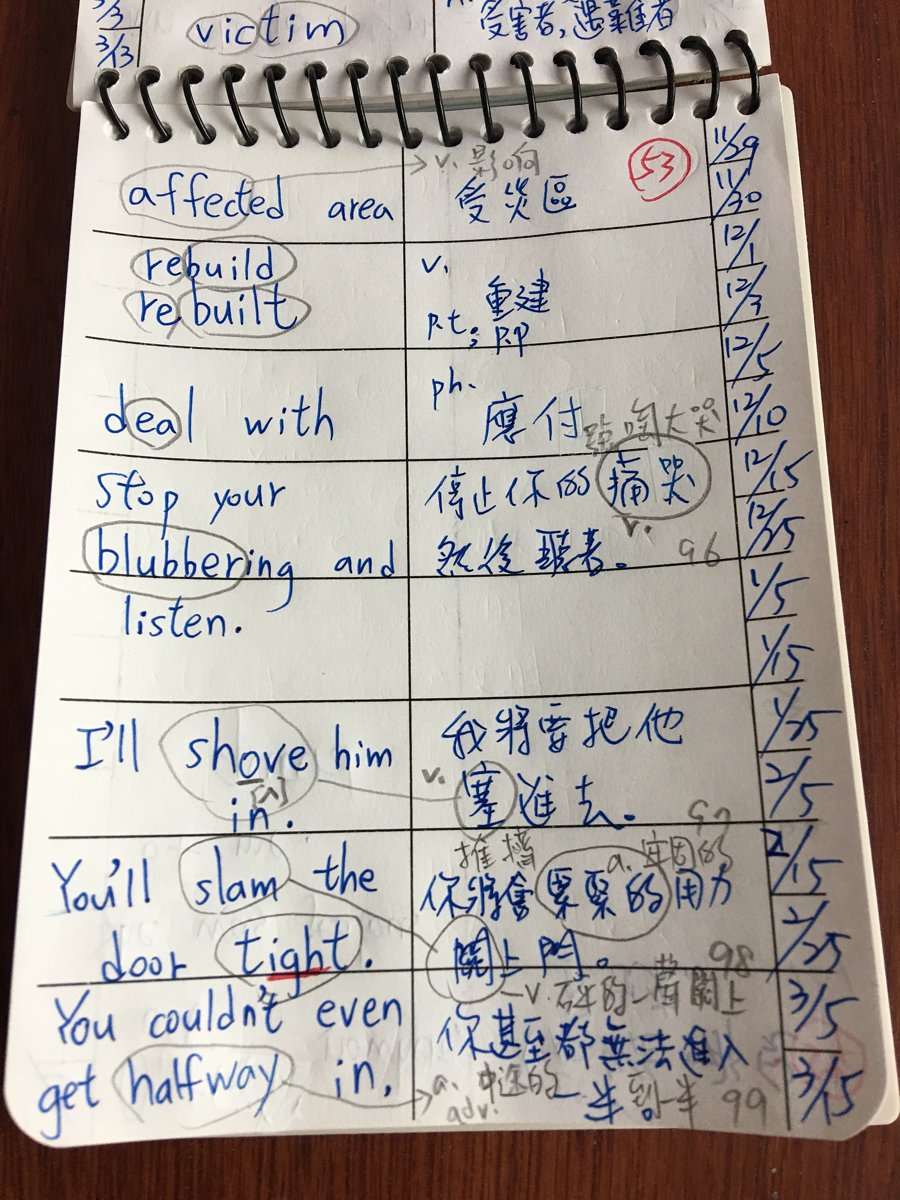 3/3
3/13
victim
受害者,遇難者
affected area
→ v. 影响
受災區
53
rebuild
rebuilt
v.
重建
p.t; p.p
deal with
ph.
應付
號啕大哭
stop your
blubbering and
listen.
停止你的痛哭
v.
然後聽著。
96
I'll shove him
[ʌ]
in.
我將要把他
v.
塞進去。
97
推擠
You'll slam the
door tight.
a. 牢固的
你將會緊緊的用力
關上門。
98
v. 砰的一聲關上
You couldn't even
get halfway in.
你甚至都無法進入
一半
到一半
a. 中途的
adv.
99
11/29
11/30
12/1
12/3
12/5
12/10
12/15
12/25
1/5
1/15
1/25
2/5
2/15
2/25
3/5
3/15